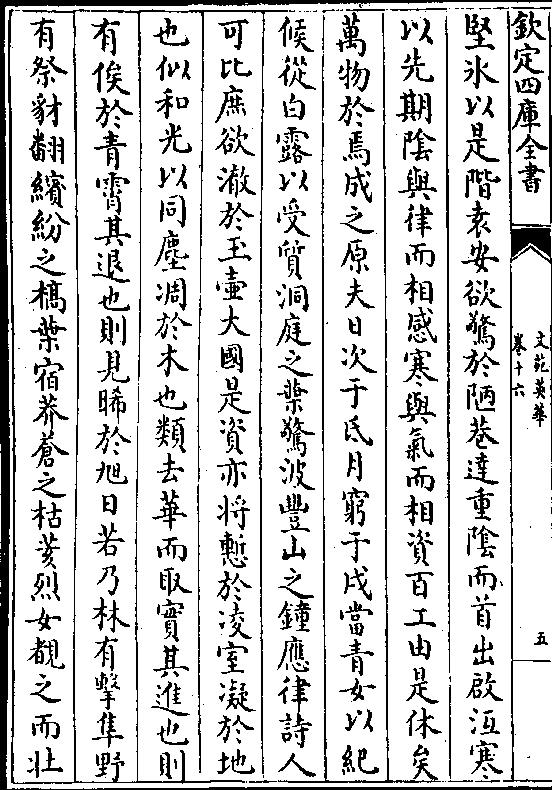 欽定四庫全書
文苑英華
卷十六
五
堅氷以是階袁安欲驚於陋巷達重陰而首出啟沍寒
以先期陰與律而相感寒與氣而相資百工由是休矣
萬物於焉成之原夫日次于氐月窮于戌當青女以紀
候從白露以受質洞庭之葉驚波豐山之鐘應律詩人
可比庶欲澈於玉壷大國是資亦将慙於凌室凝於地
也似和光以同塵凋於木也類去華而取實其進也則
有俟於青霄其退也則見晞於旭日若乃林有擊隼野
有祭豺翻繽紛之槁葉宿莽蒼之枯荄烈女覩之而壮